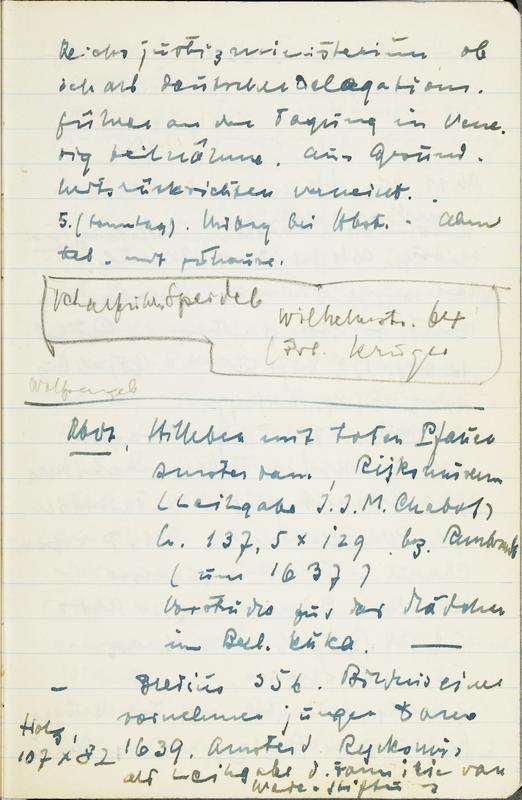 Reichsjustizministerium ob
ich als deutscher Delegations-
führer an der Tagung in Vene-
dig teilnähme. Aus Gesund-
heitsrücksichten verneint.
5. (Sonntag). Mittag bei Abst. Abend
tel. mit zuhause.
Scharführer Speidel
Wilhelmstr. 64
(Frl. Krüger
Wolfram
Rbdt, Stilleben mit toten Pfauen
Amsterdam, Rijksmuseum
(Leihgabe J.J.M. Chabot)
h. 137,5 x 129 bez. Rembrandt
(um 1637)
Vorstudie zu der Mädchen
im Besl. Küka. —
— Bredius 356. Bildnis einer
vornehmen jungen Dame
Holz,
107 x 82
1639. Amsterd. Ryksmus,
als Leihgabe d. Familie van
Weede-Stiftung